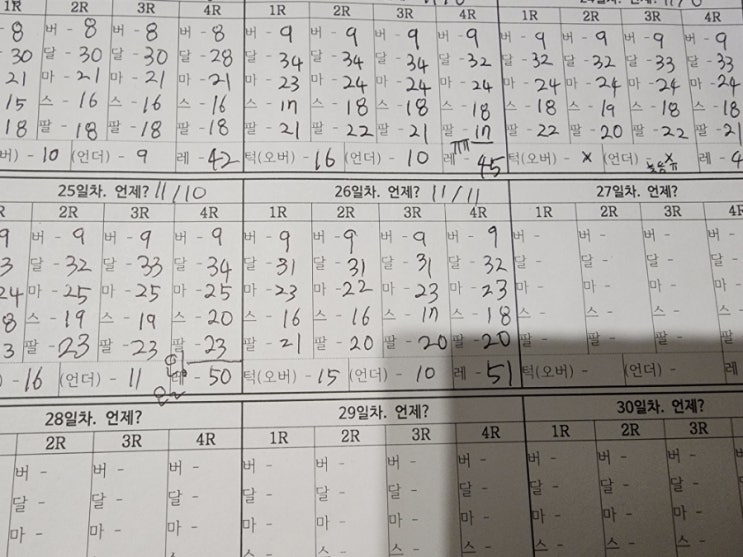 1R 2R 3R 4R 1R 2R 3R 4R 1R 2R 3R 4R
-8 버-8 버-8 버-8 버-9 버-9 버-9 버-9 버-9 버-9 버-9 버-9
-30 달-30 달-30 달-28 달-34 달-34 달-34 달-32 달-32 달-32 달-33 달-33
21 마-21 마-21 마-21 마-23 마-24 마-24 마-24 마-24 마-24 마-24 마-24
15 스-16 스-16 스-16 스-17 스-18 스-18 스-18 스-18 스-19 스-18 스-18
18 팔-18 팔-18 팔-18 팔-21 팔-22 팔-21 팔-17 팔-22 팔-20 팔-22 팔-21
버)-10 (언더)-9 레-42 턱(오버)-16 (언더)-10 레-45 턱(오버)-x (언더)-x 레-4
25일차. 언제? 11/10 26일차. 언제? 11/11 27일차. 언제?
R 2R 3R 4R 1R 2R 3R 4R 1R 2R 3R 4R
9 버-9 버-9 버-9 버-9 버-9 버-9 버-9 버- 버- 버- 버-
3 달-32 달-33 달-34 달-31 달-31 달-31 달-32 달- 달- 달- 달-
24 마-25 마-25 마-25 마-23 마-22 마-23 마-23 마- 마- 마- 마-
8 스-19 스-19 스-20 스-16 스-16 스-17 스-18 스- 스- 스- 스-
3 팔-23 팔-23 팔-23 팔-21 팔-20 팔-20 팔-20 팔- 팔- 팔- 팔-
)-16 (언더)-11 레-50 턱(오버)-15 (언더)-10 레-51 턱(오버)- (언더)- 레
28일차. 언제? 29일차. 언제? 30일차. 언제?
2R 3R 4R 1R 2R 3R 4R 1R 2R 3R
버- 버- 버- 버- 버- 버- 버- 버- 버- 버-
달- 달- 달- 달- 달- 달- 달- 달- 달- 달-
마- 마- 마- 마- 마- 마- 마- 마- 마- 마-